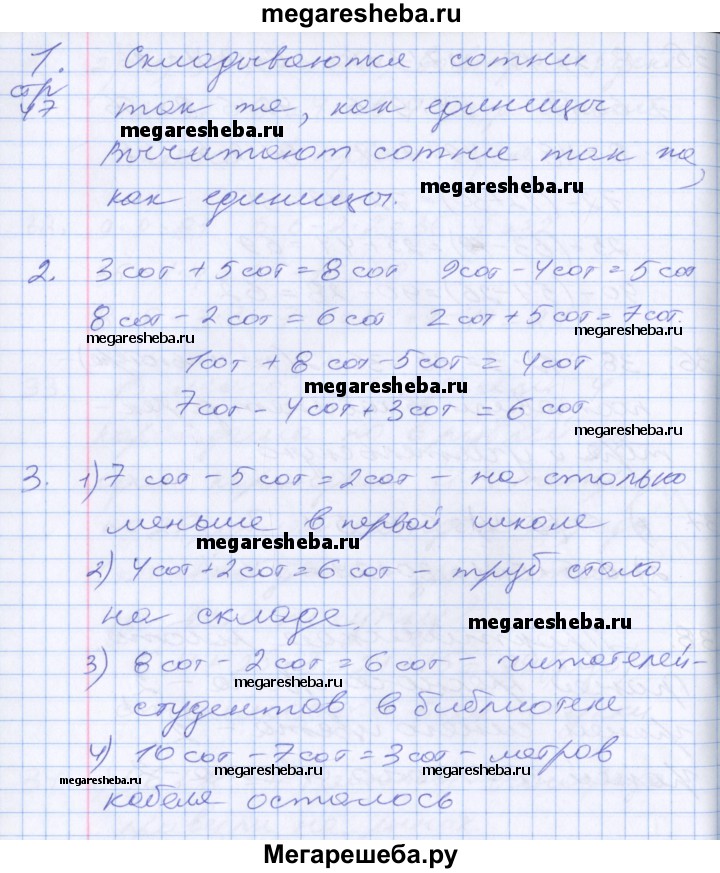 megaresheba.ru
1. Складываются сотни
стр 47 так же, как единицы
megaresheba.ru
Вычитают сотни так же,
megaresheba.ru
как единицы.
2. 3 сот + 5 сот = 8 сот 9 сот - 4 сот = 5 сот
8 сот - 2 сот = 6 сот 2 сот + 5 сот = 7 сот.
megaresheba.ru megaresheba.ru
1 сот + 8 сот - 5 сот = 4 сот
megaresheba.ru
7 сот - 4 сот + 3 сот = 6 сот
megaresheba.ru
3. 1) 7 сот - 5 сот = 2 сот - на столько
меньше в первой школе
megaresheba.ru
2) 4 сот + 2 сот = 6 сот - труб стало
на складе.
megaresheba.ru
3) 8 сот - 2 сот = 6 сот - читателей-
megaresheba.ru
студентов в библиотеке
4) 10 сот - 7 сот = 3 сот - метров
megaresheba.ru megaresheba.ru megaresheba.ru
кабеля осталось
Мегарешеба.ру